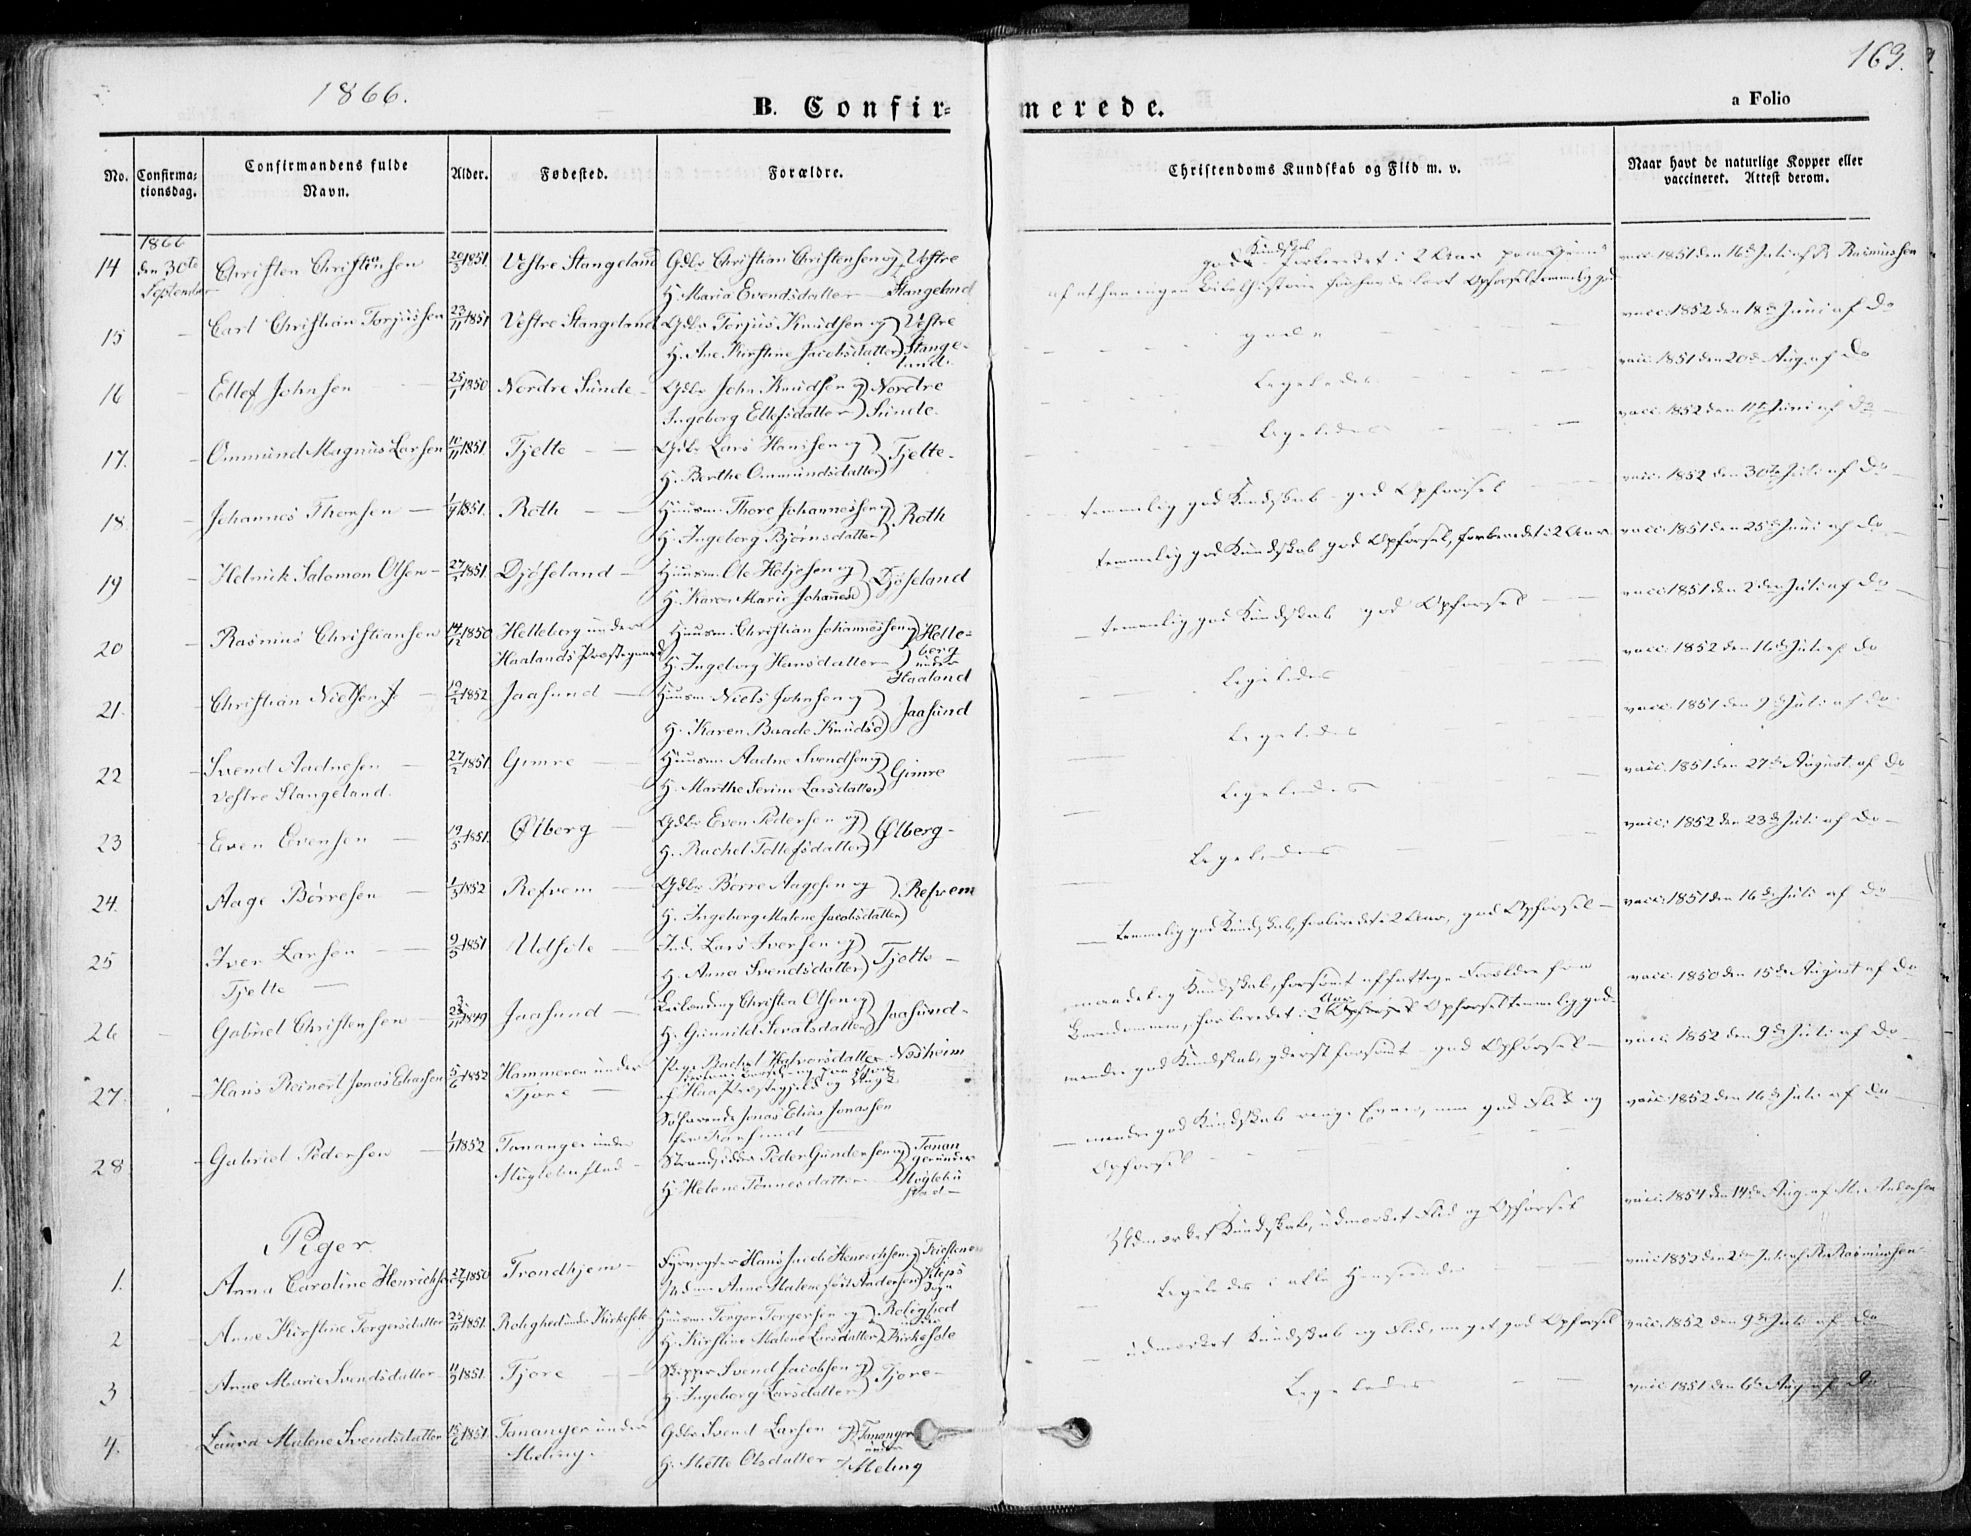 1866.
163.
B. Confir=
merede.
a Folio
No.
Confirma=
tionsdag.
Confirmandens fulde
Navn.
Alder.
Fødested.
Forældre.
Christendoms Kundskab og Flid m. v.
Naar havt de naturlige Kopper eller
vaccineret. Attest derom.
1866
14 den 30te Christen Christiansen 20/3 1851 Vestre Stangeland Gdbr Christian Christensen og Vestre
September H. Maria Evendsdatter Stangeland
Kundskab
vacc. 1851 den 16de Juli af R. Rasmussen
15 Carl Christian Torjussen 23/11 1851 Vestre Stangeland Gdbr Torjus Knudsen og Vestre
H. Ane Kirstine Jacobsdatter Stange-
land.
gode
vacc. 1852 den 18de Juni af Do
16 Ellef Johnsen 25/1 1850 Nordre Sunde Gdbr John Knudsen og Nordre
Ingeborg Ellefsdatter Sunde.
Ligeledes
vacc. 1851 den 20de Aug. af Do
17. Ommund Magnus Larsen 10/11 1851. Tjelte Gdbr Lars Hansen og Tjelte.
H. Berthe Ommundsdatter
Ligeledes
vacc. 1852 den 11te Juni af Do
18 Johannes Thorsen 1/9 1851. Roth Huusm. Thore Johannessen og Roth
H. Ingeborg Bjørnsdatter
temmelig god Kundskab god Opførsel
vacc. 1852 den 30te Juli af Do
19 Helmik Salomon Olsen 1851. Djøseland Huusm. Ole Helgesen og Djøseland
H. Karen Marie Johannesd
temmelig god Kundskab god Opførsel, forberedet i 2 Aar
vacc. 1851 den 25de Juni af Do
20 Rasmus Christiansen 14/12 1850 Helleberg under Huusm. Christian Johannessen og Helle-
Haalands Præstegaard H. Ingeborg Hansdatter berg
under
Haaland
temmelig god Kundskab god Opførsel
vacc. 1851 den 2den Juli af Do
21. Christian Nielsen 19/2 1852 Jaasund Huusm. Niels Johnsen og Jaasund
H. Karen Knudsd
Ligeledes
vacc. 1852 den 16de Juli af Do
22 Svend Aadnesen 27/2 1851 Gimre Huusm. Aadne Svendsen og Gimre
Vestre Stangeland. H. Marthe Serine Larsdatter
Ligeledes
vacc. 1851 den 9de Juli af Do
23 Even Evensen 19/5 1851. Ølberg Gdbr Even Pedersen og Ølberg
H. Rachel Tollefsdatter
Ligeledes
vacc. 1851 den 27de August af Do
24. Aage Børresen 1/3 1852 Refvem Gdbr Børre Aagesen og Refvem
H. Ingeborg Malene Jacobsdatter
Ligeledes
vacc. 1852 den 23de Juli af Do
25 Iver Larsen 9/3 1851 Udsole Ind. Lars Iversen og Tjelte
Tjelte H. Anna Svendsdatter
temmelig god Kundskab, forberedet i 2 Aar, god Opførsel
vacc. 1851 den 16de Juli af Do
26 Gabriel Christensen 23/11 1849 Jaasund Leilending Christen Olsen og Jaasund
H. Gunnild
maadelig Kundskab, forsømt af fattige Forældre fra
Barndommen, forberedet i 2 Aar Opførsel temmelig god
vacc. 1850 den 15de August af Do
27 Hans Reinert Jonas Eliassen 5/6 1852 Hammeren under Pige Rachel Halvorsdatter Næsheim
Tjore af Haa Præstegjeld og
Søfarende Jonas Elias Jonassen
Farsund
mindre god Kundskab, yderst forsømt god Opførsel
vacc. 1852 den 9de Juli af Do
28 Gabriel Pedersen 1/1 1852 Tananger under Strandsidder Peder Gundersen og Tanan
Myglebustad H. Helene Tønnesdatter ger under
Myglebu
stad
mindre god Kundskab ringe Evner, men god Flid og
Opførsel
vacc. 1852 den 16de Juli af Do
Piger
1. Anna Caroline Henrichsen 27/7 1850 Trondhjem Fyrvogter Hans Jacob Henrichsen og
Anne Malene født Andersen Kleps
Sogn
Udmærket Kundskab, udmærket Flid og Opførsel
vacc. 1854 den 14de Aug. af M. Andersen
2 Anne Kirstine Torgersdatter 23/11 1851. Rolighed under Kirkesole Huusm. Torger Torgersen og Rolighed
under
H. Kirstine Malene Larsdatter Kirkesole
Ligeledes i alle Henseender
vacc. 1852 den 2den Juli af R. Rasmussen
3 Anne Marie Svendsdatter 11/9 1851. Tjore Skipper Svend Jacobsen og Tjore
H. Ingeborg Larsdatter
udmærket Kundskab og Flid, meget god Opførsel
vacc. 1852 den 9de Juli af Do
4. Laura Malene Svendsdatter 15/6 1851. Tananger under Gdbr Svend Larsen og Tananger
Meling. H. Mette Olsdatter under
Meling
Ligeledes
vacc. 1851 den 6te August af Do